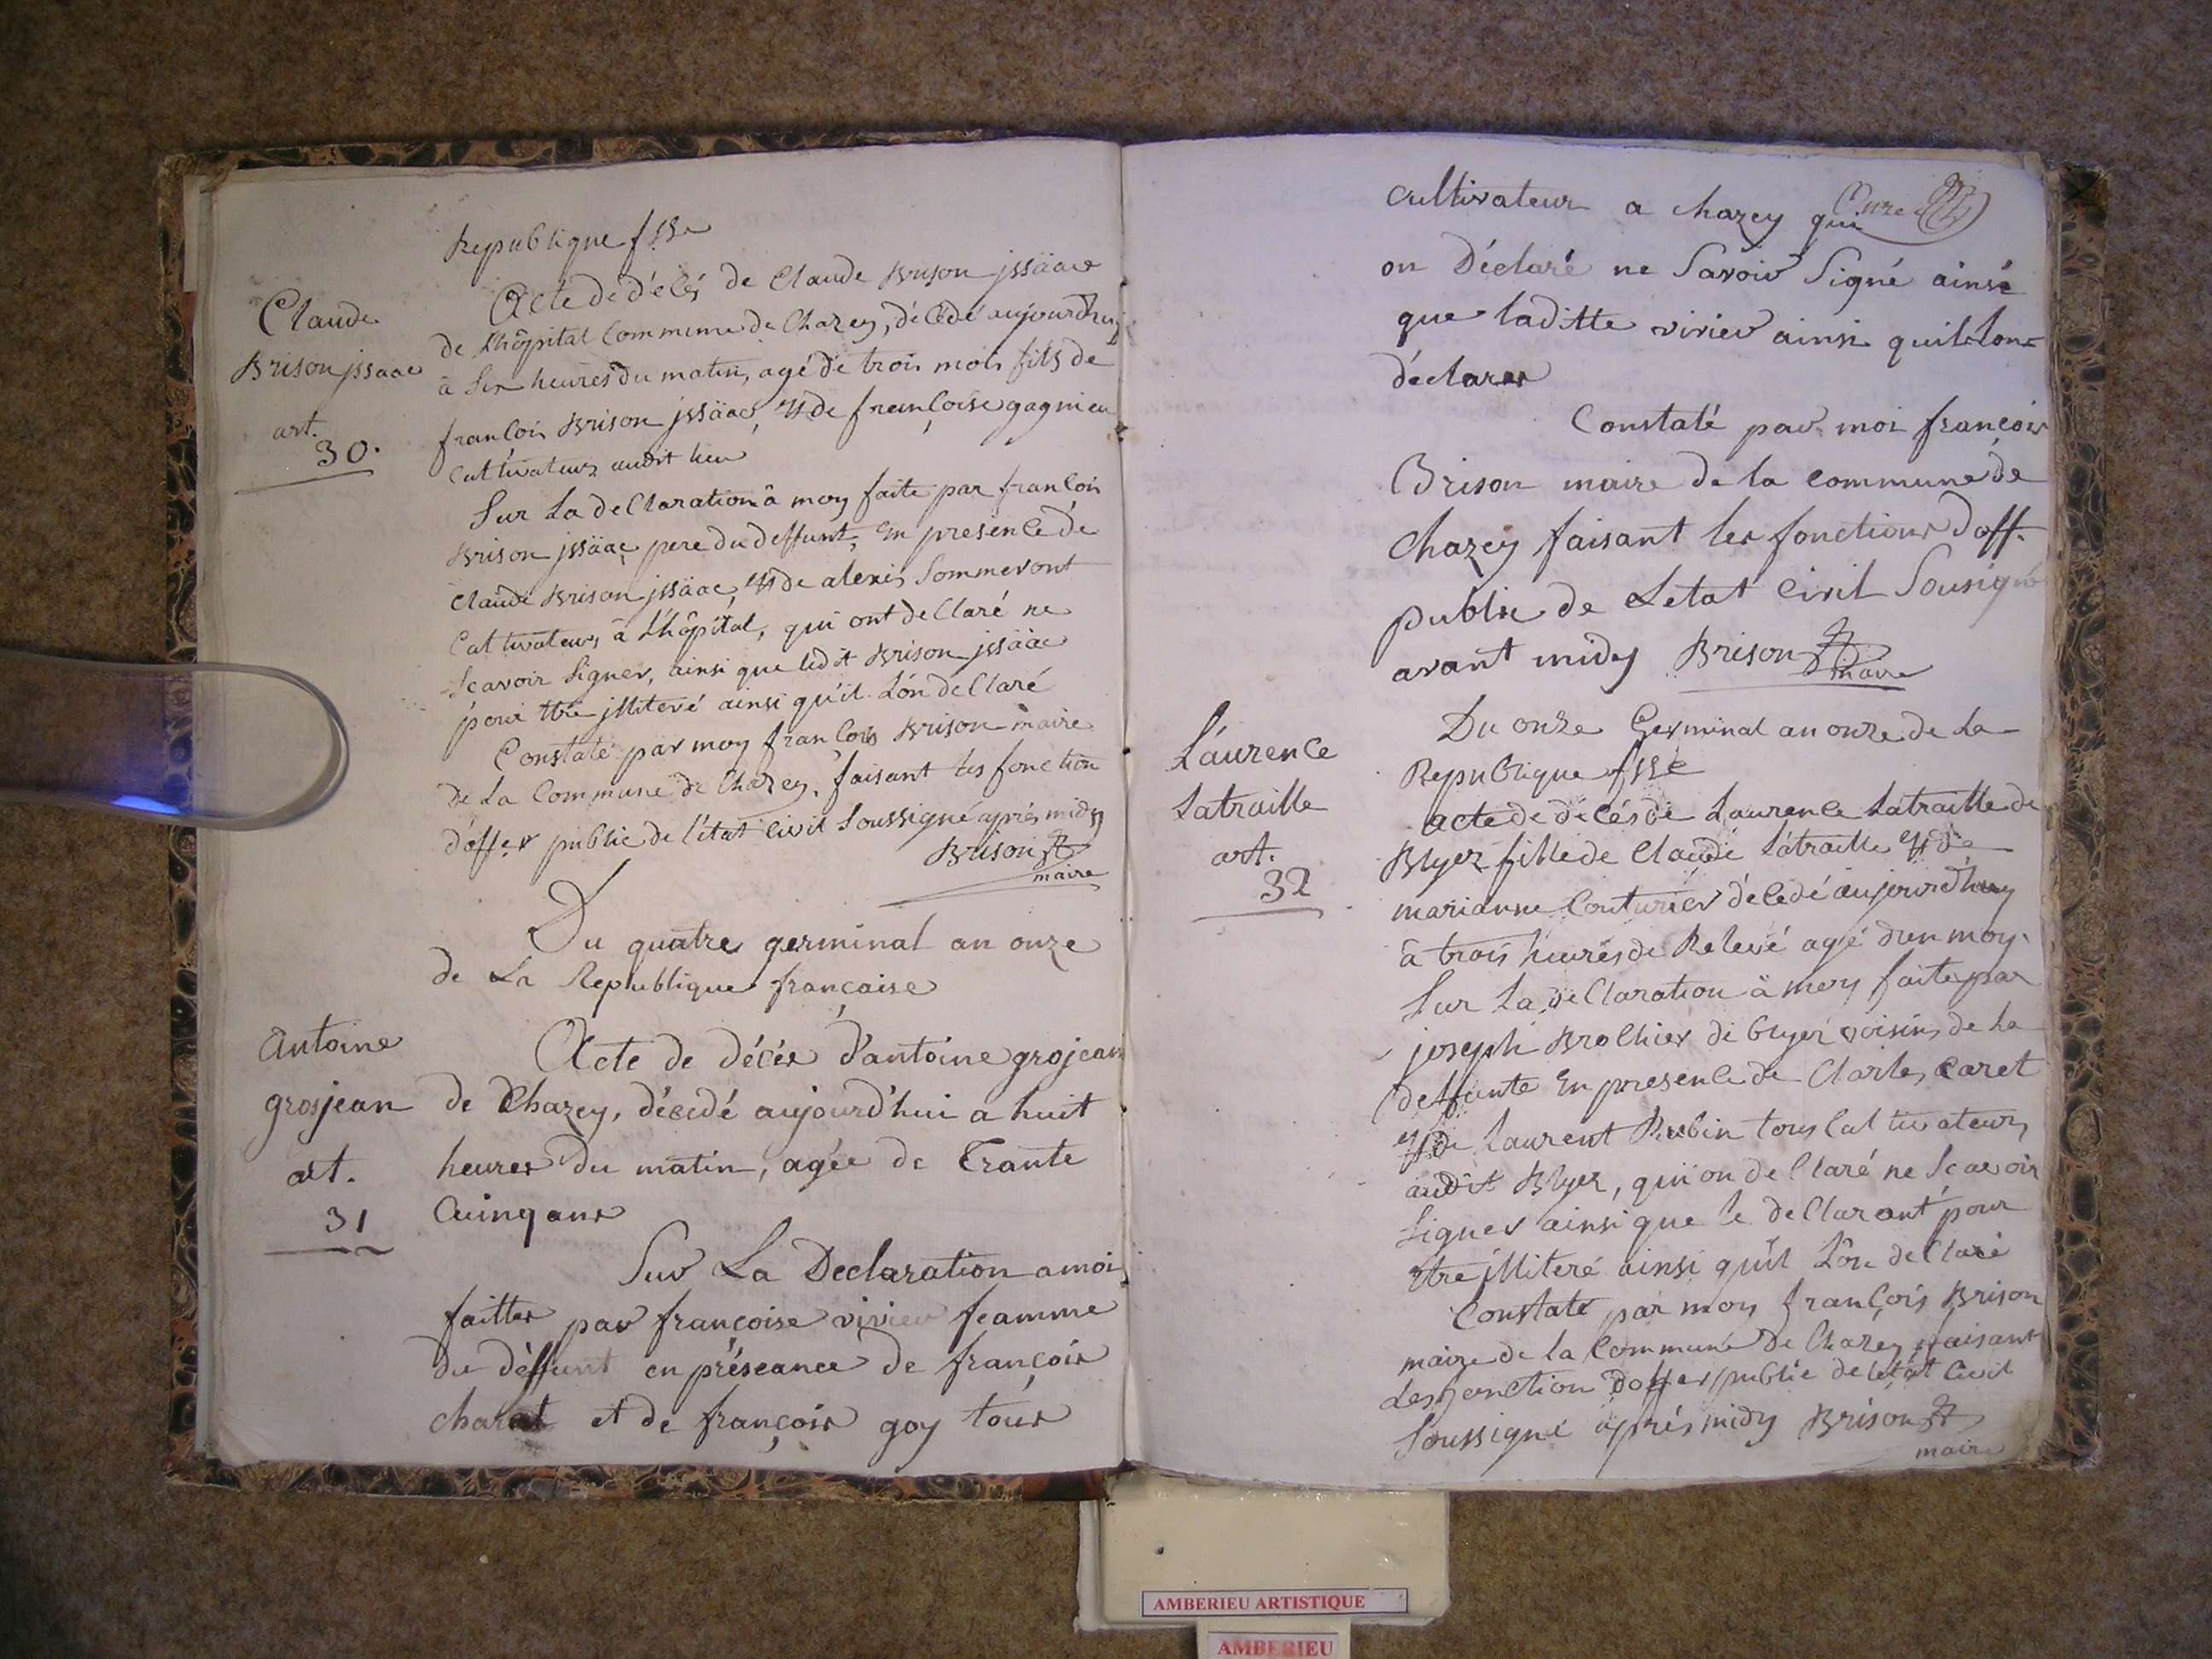 Republique fsse
Claude
Brison jssaac
art.
30.
Acte de décés de Claude Brison jssäac
de L'hôpital Commune de Chazey, décédé aujourd'huy
à six heures du matin, agé de trois mois fils de
françois Brison jssäac, et de françoise gagnieu
Cultivateurs audit lieu
Sur La declaration â moy faite par francois
Brison jssäac pere du deffunt, En presence de
Claude Brison jssäac, et de alexis Sommeront
Cultivateurs â L'hôpital, qui ont declaré ne
scavoir signer, ainsi que ledit Brison jssäac
pour être jlliteré ainsi qu'il L'ón declaré
Constaté par moy françois Brison maire
de La Commune de Chazey, faisant les fonction
d'offer public de l'état civil Soussigné aprés midy
Brison
maire
Du quatre germinal an onze
de La Republique française
Antoine
grosjean
art.
31
Acte de décès d'antoine grojean
de Chazey, décedé aujourd'hui a huit
heures du matin, agée de Trante
Cuinq ans
Sur La Declaration a moi
faittes par françoise vivier feamme
du déffunt en préseance de françois
charat et de françois goy tous
cultivateur a chazey qui
on Déclaré ne Savoir Signé ainsi
que laditte vivier ainsi quil lon
déclarer
Constaté par moi françois
Brison maire de la commune de
Chazey faisant les fonctions doff.
public de Letat Civil Sousigné
avant midy Brison
maire
Du onze Germinal an onze de La
Republique fsse
Laurence
Latraille
art.
32
acte de décés de Laurence Latraille de
Blyez fille de Claude Latraille et de
marianne Couturier décedé aujourd'huy
â trois heures de Relevé agé d'un moy.
Sur La declaration ä moy faite par
joseph Brochier de blyer voisin, de la
deffunte En presence de Charles Caret
et de Laurent Rubin tous Cultivateurs
audit Blyez, qui on declaré ne Scavoir
signer ainsi que le declarant pour
être jlliteré ainsi qu'il L'ôn declaré
Constaté par moy françois Brison
maire de la Commune de Chazey faisant
Les fonction d'offer public de l'état civil
Soussigné äprés midy Brison
maire
AMBERIEU ARTISTIQUE
AMBERIEU